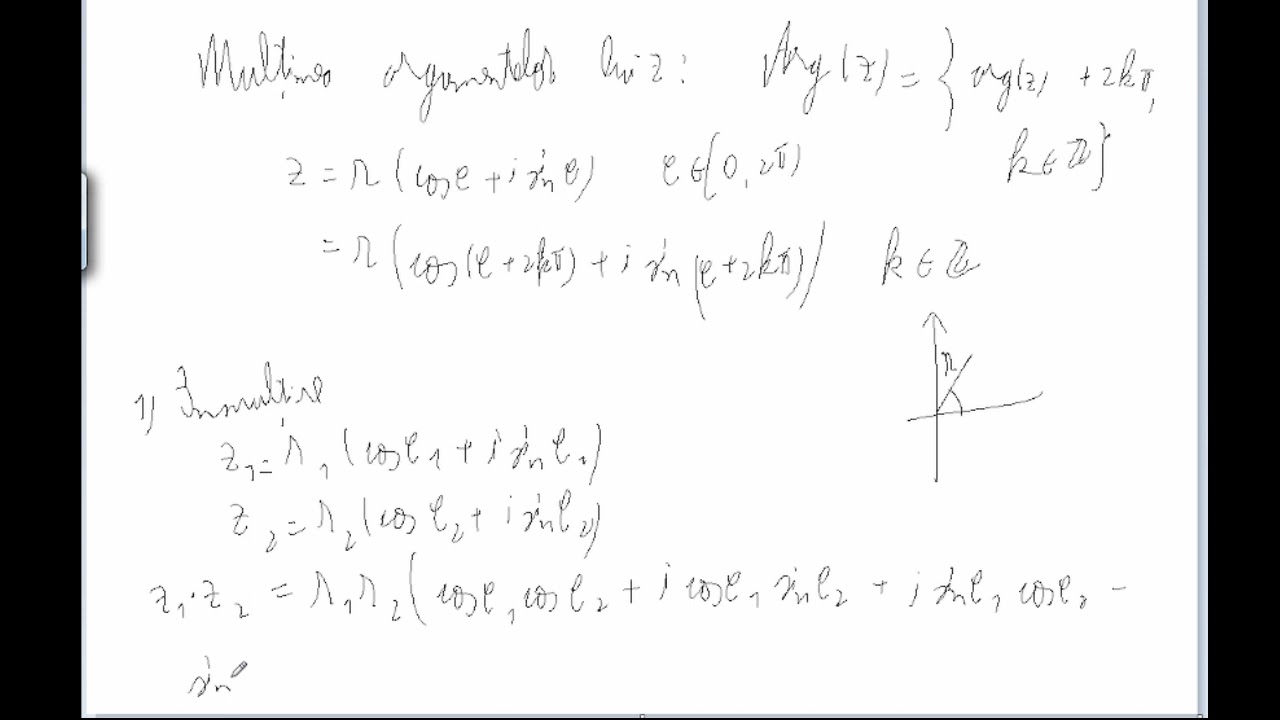 Mulțimea argumentelor lui z: Arg(z) = { arg(z) + 2kπ,
k ∈ ℤ}
z = r (cos φ + i sin φ) φ ∈ [0, 2π)
= r (cos(φ + 2kπ) + i sin(φ + 2kπ)) k ∈ ℤ
r
1) Înmulțire
z₁ = r₁ (cos φ₁ + i sin φ₁)
z₂ = r₂ (cos φ₂ + i sin φ₂)
z₁·z₂ = r₁r₂ (cos φ₁ cos φ₂ + i cos φ₁ sin φ₂ + i sin φ₁ cos φ₂ −
sin